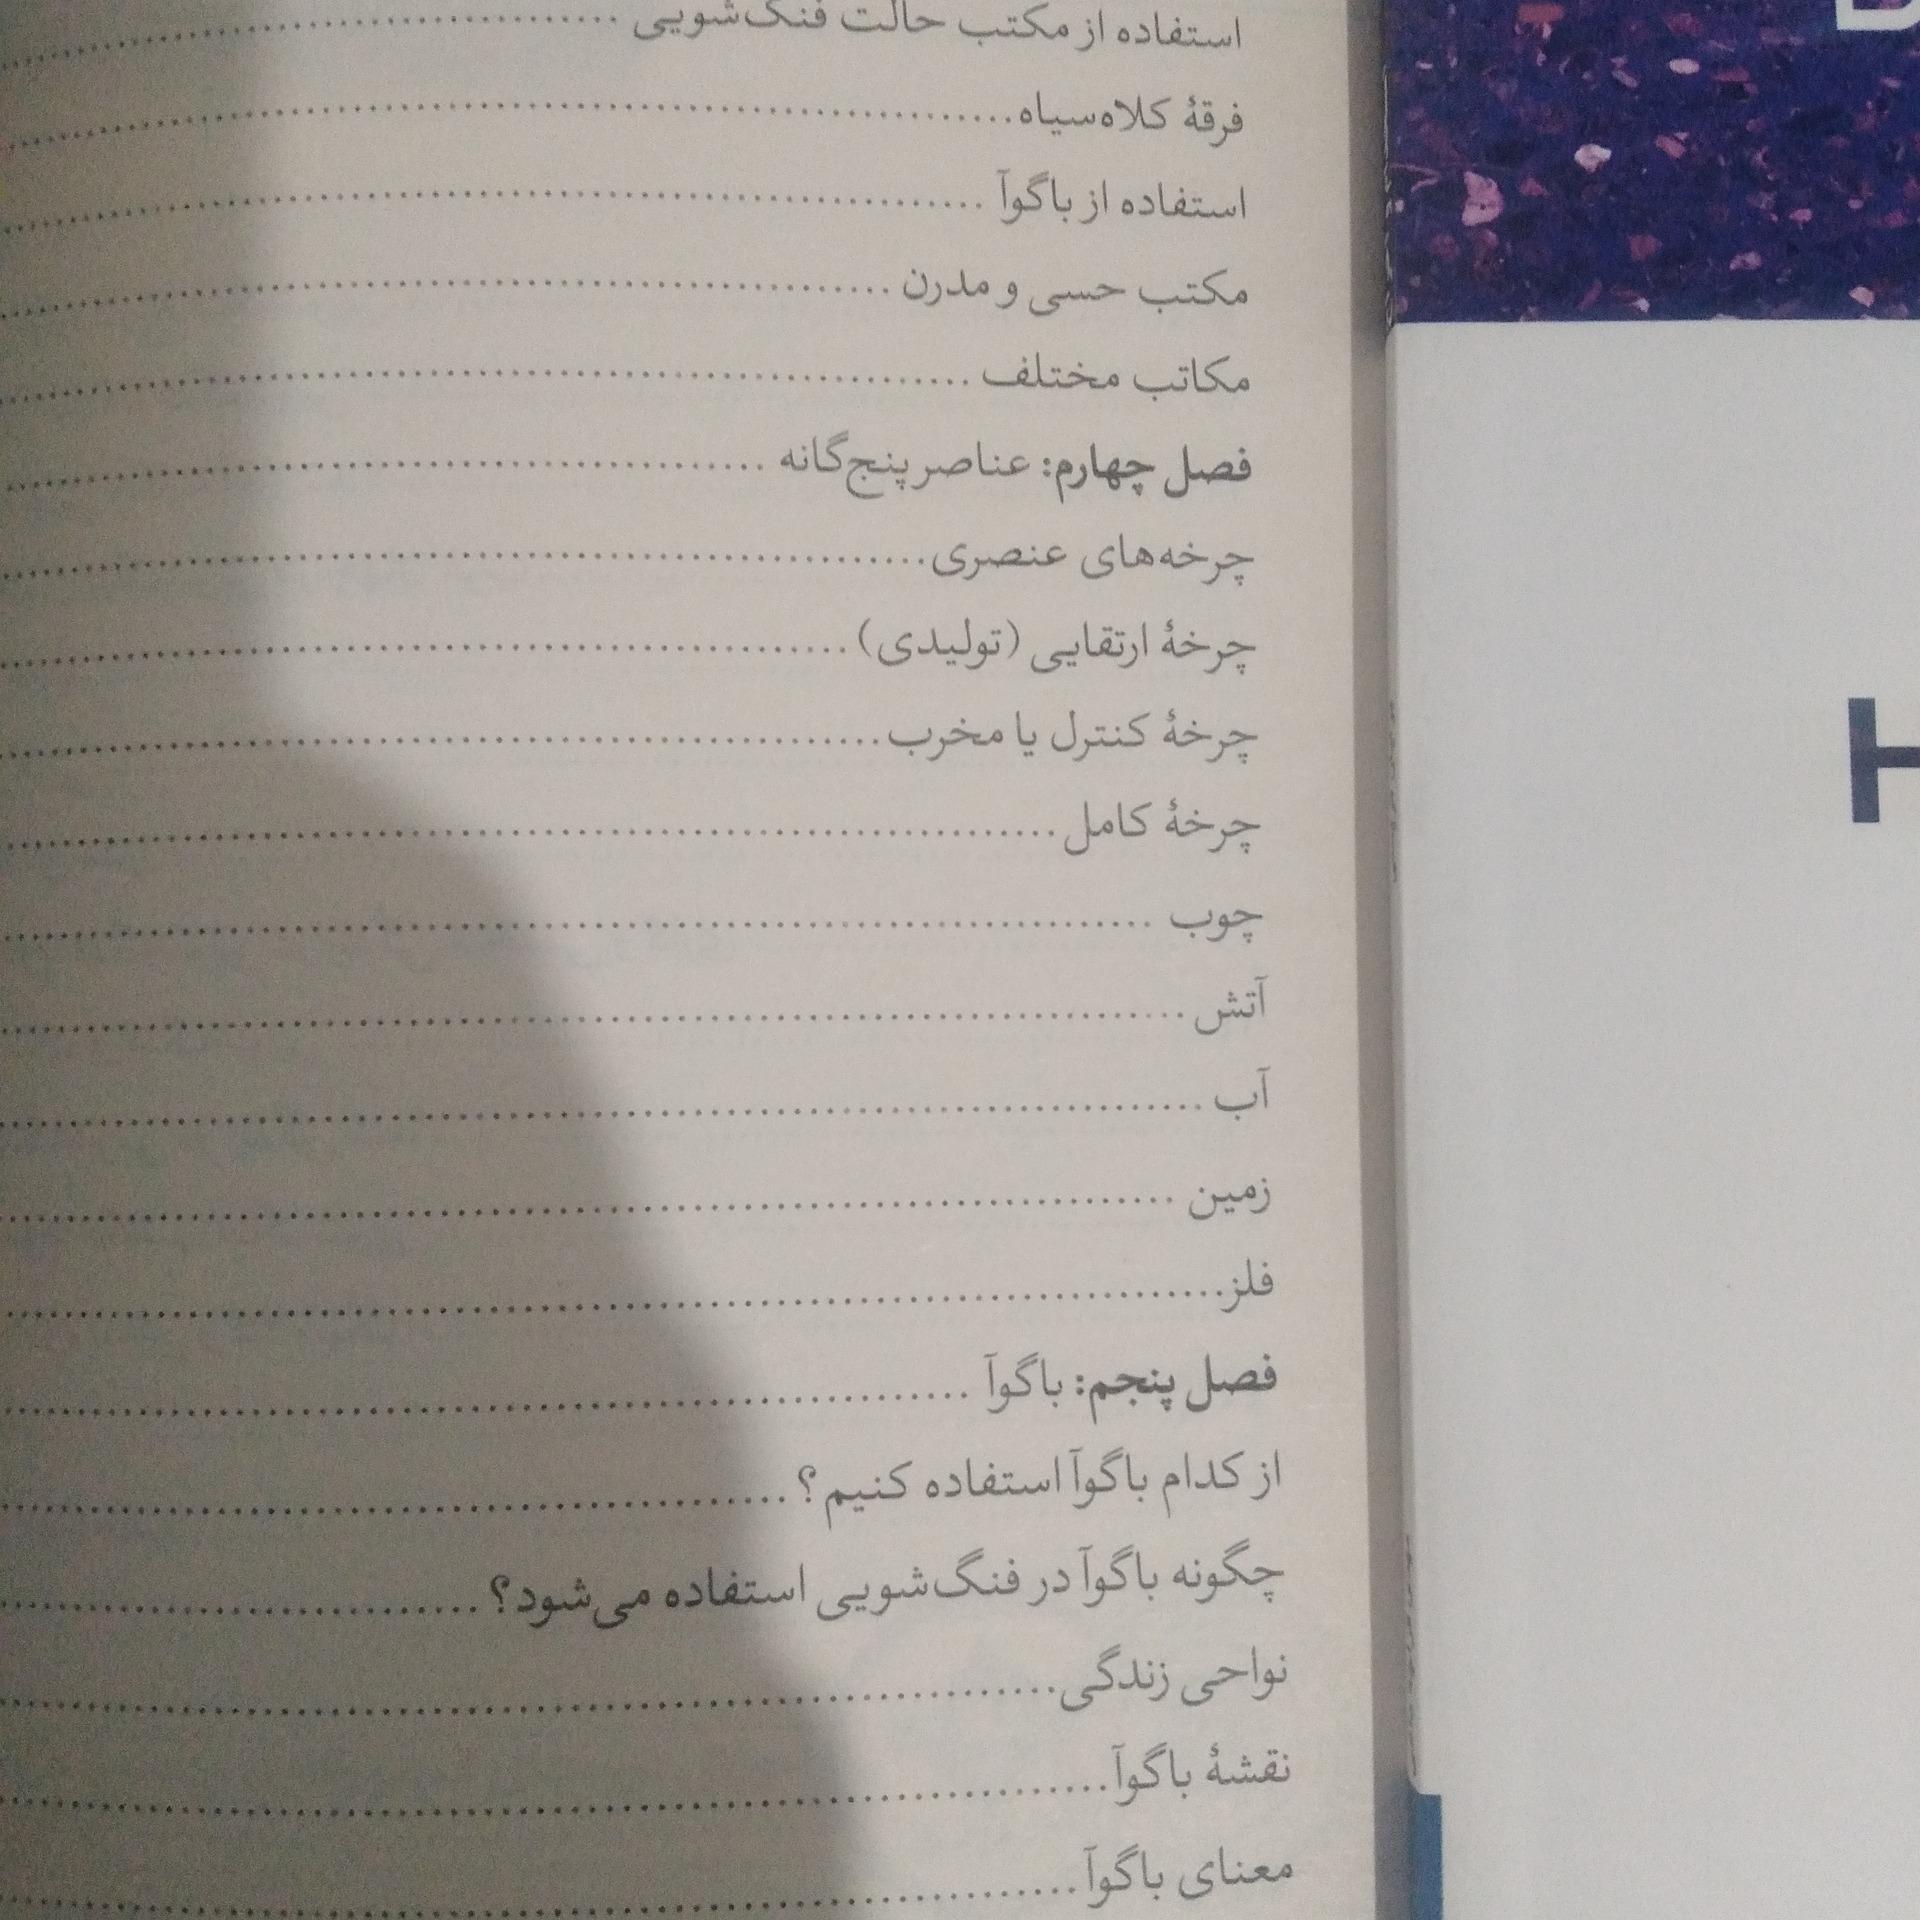 استفاده از مکتب حالت فنگ‌شویی
فرقهٔ کلاه‌سیاه
استفاده از باگوآ
مکتب حسی و مدرن
مکاتب مختلف
فصل چهارم: عناصر پنج‌گانه
چرخه‌های عنصری
چرخهٔ ارتقایی (تولیدی)
چرخهٔ کنترل یا مخرب
چرخهٔ کامل
چوب
آتش
آب
زمین
فلز
فصل پنجم: باگوآ
از کدام باگوآ استفاده کنیم؟
چگونه باگوآ در فنگ‌شویی استفاده می‌شود؟
نواحی زندگی
نقشهٔ باگوآ
معنای باگوآ
H